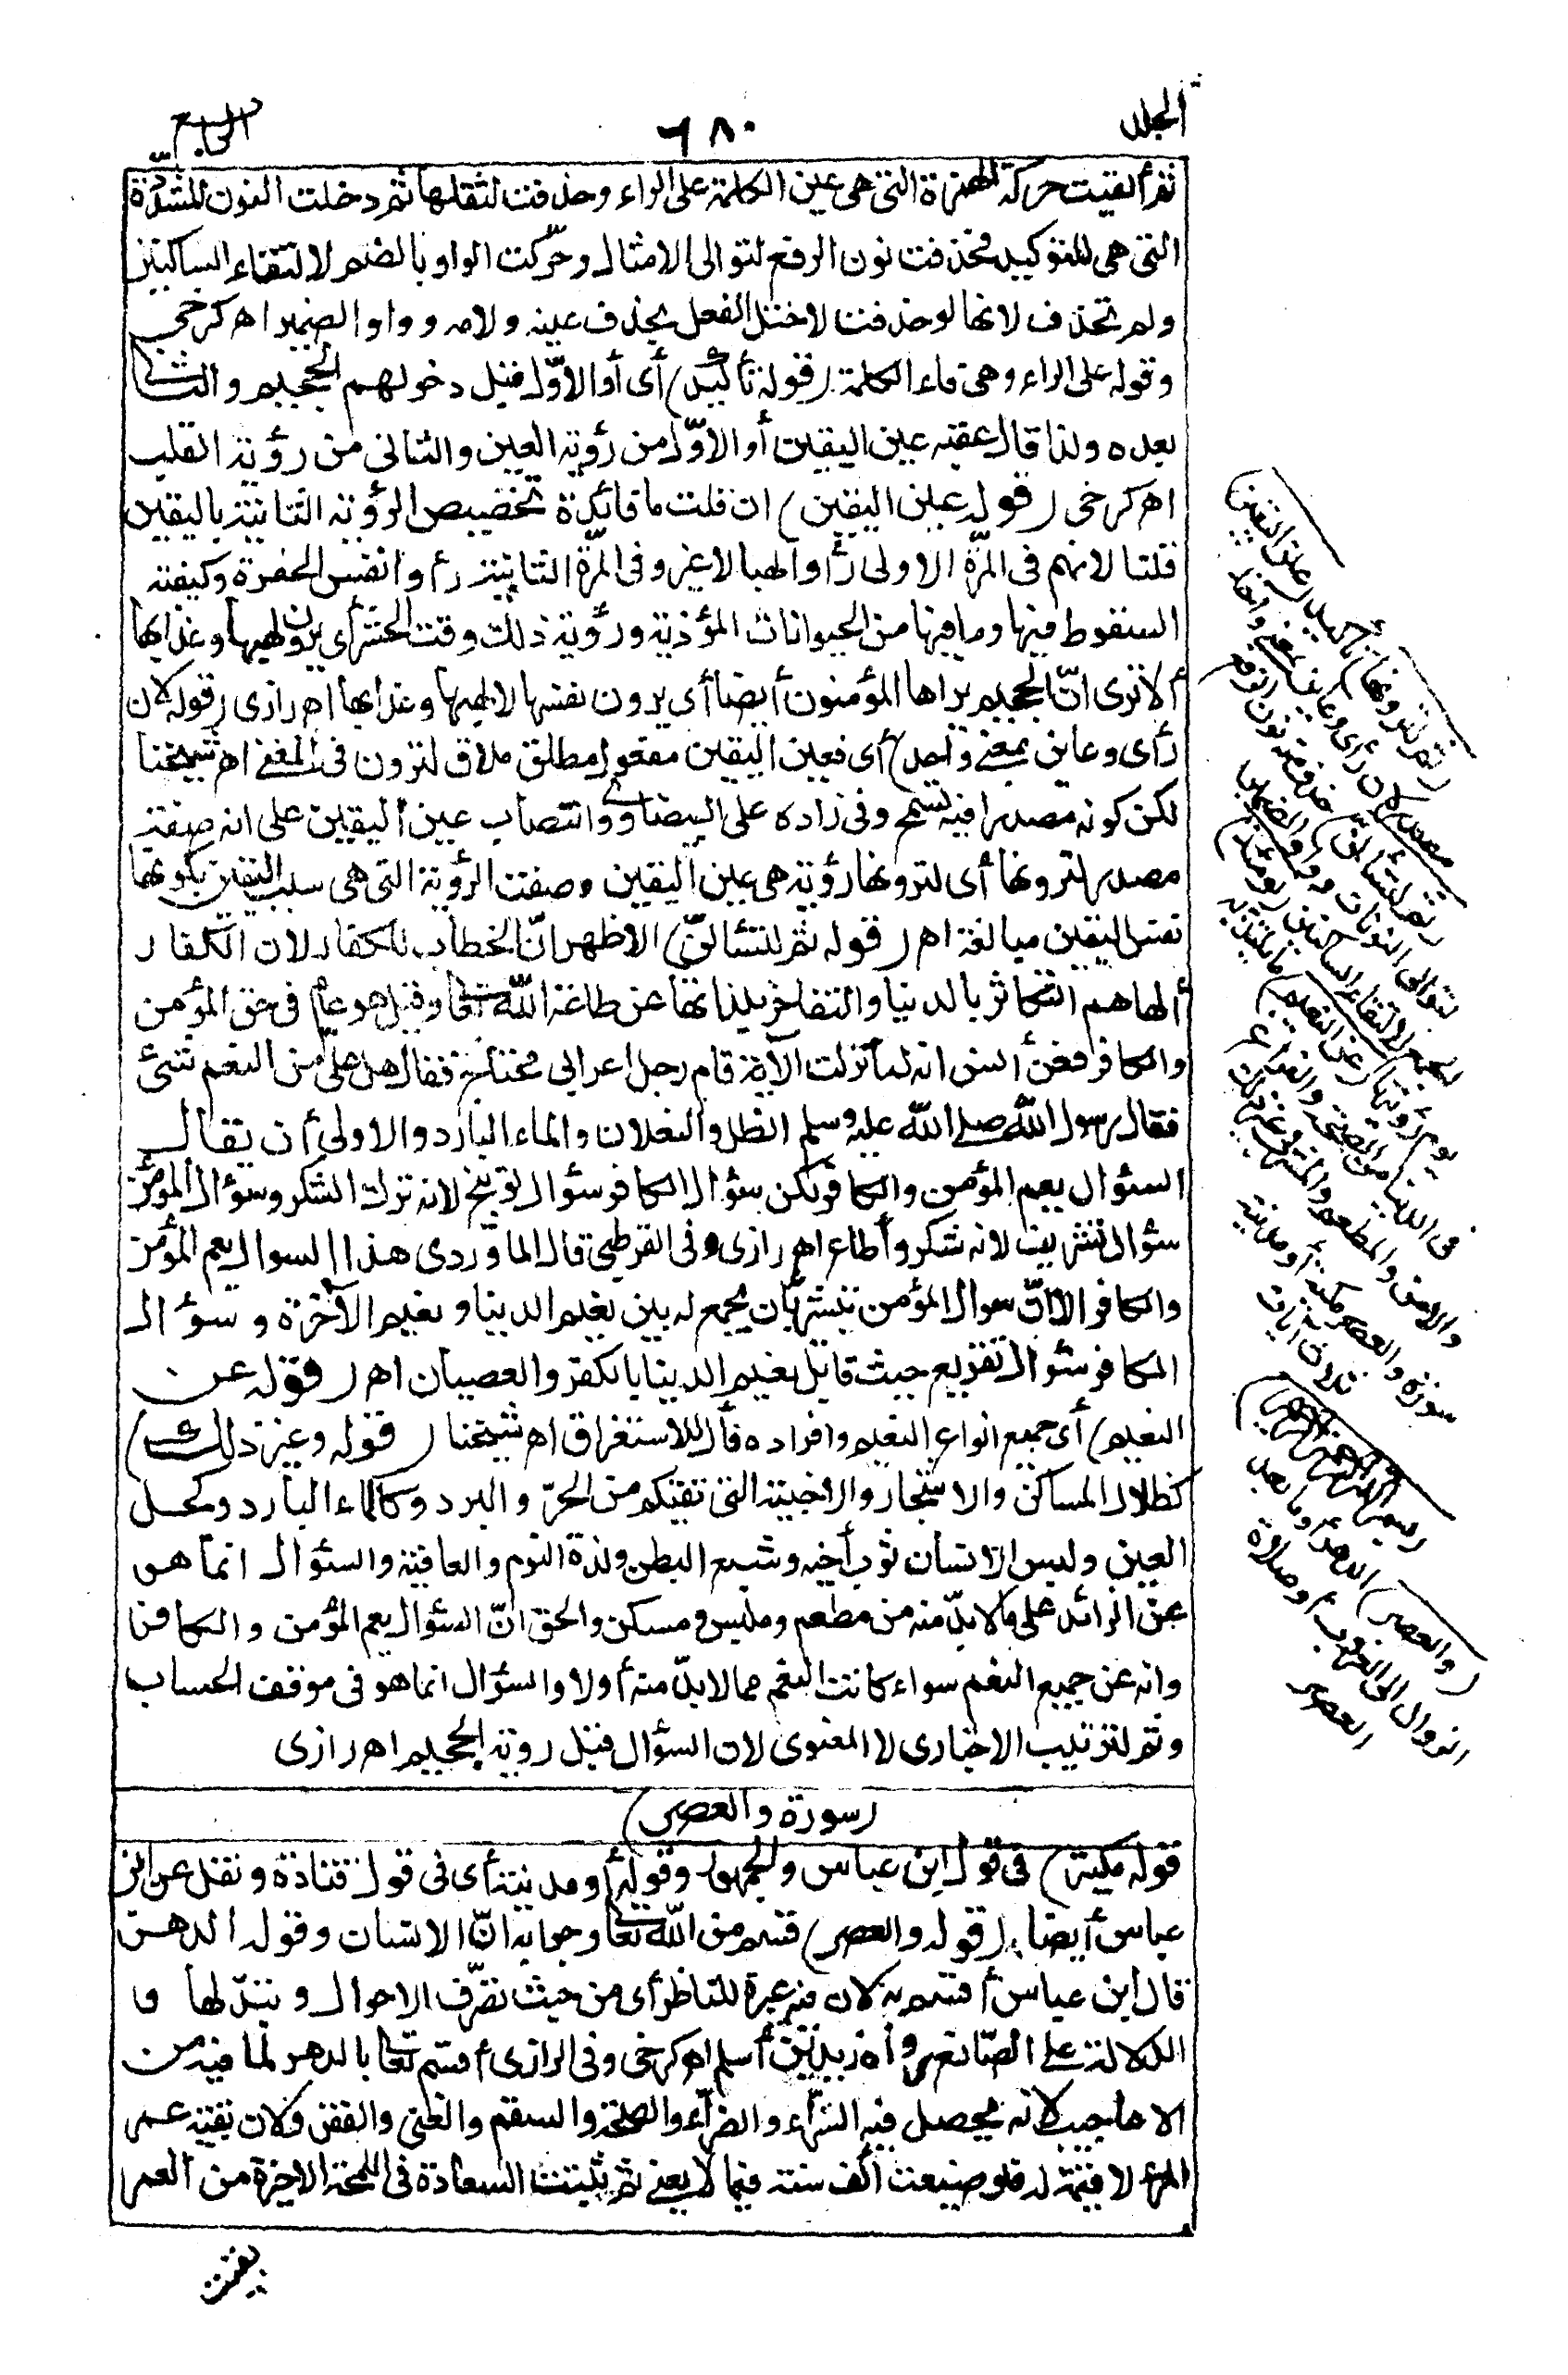 المجلد
٦٨٠
الرابع
ثم ألقيت حركة الهمزة التى هى عين الكلمة على الراء وحذفت لثقلها ثم دخلت النون المشدّدة
التى هى للتوكيد فحذفت نون الرفع لتوالى الامثال وحرّكت الواو بالضم لالتقاء الساكنين
ولم تحذف لانها لو حذفت لاختل الفعل بحذف عينه ولامه وواو الضمير اه كرخى
وقوله على الراء وهى فاء الكلمة (قوله تأكيد) أى أو الاوّل قبل دخولهم الجحيم والثانى
بعده ولذا قال عقبه عين اليقين أو الاوّل من رؤية العين والثانى من رؤية القلب
اه كرخى (قوله عين اليقين) ان قلت ما فائدة تخصيص الرؤية الثانية باليقين
قلنا لانهم فى المرّة الاولى رأوا لهبا لاغير وفى المرّة الثانية رأوا نفس الحفرة وكيفية
السقوط فيها وما فيها من الحيوانات المؤذية ورؤية ذلك وقت الحشر أى يرون لهبها وعذابها
ألا ترى انّ الجحيم يراها المؤمنون أيضا أى يرون نفسها لا لهبها وعذابها اه رازى (قوله لان
رأى وعاين بمعنى واحد) أى فعين اليقين مفعول مطلق ملاق لترون فى المعنى اه شيخنا
لكن كونه مصدرا فيه تسمح وفى زاده على البيضاوى وانتصاب عين اليقين على انه صفة
مصدر لترونها أى لترونها رؤية هى عين اليقين وصفت الرؤية التى هى سبب اليقين بكونها
نفس اليقين مبالغة اه (قوله ثم لتسئالنّ) الاظهر انّ الخطاب للكفار لان الكفار
ألهاهم التكاثر بالدنيا والتفاخر بلذاتها عن طاعة الله تعالى وقيل هو عام فى حق المؤمن
والكافر فعن أنس انه لما نزلت الآية قام رجل اعرابى محتاج فقال هل علىّ من النعم شئ
فقال رسول الله صلى الله عليه وسلم الظل والنعلان والماء البارد والاولى أن يقال
السئوال يعم المؤمن والكافر لكن سؤال الكافر سئوال توبيخ لانه ترك الشكر وسؤال المؤمن
سئوال تشريف لانه شكر وأطاع اه رازى وفى القرطبى قال الماوردى هذا السوال يعم المؤمن
والكافر الا انّ سوال المؤمن تبشير بأن يجمع له بين نعيم الدنيا ونعيم الآخرة وسؤال
الكافر سئوال تقريع حيث قابل نعيم الدنيا بالكفر والعصيان اه (قوله عن
النعيم) أى جميع انواع النعيم وافراده فأل للاستغراق اه شيخنا (قوله وغير ذلك)
كظلال المساكن والاشجار والاخبية التى تقيكم من الحرّ والبرد وكالماء البارد وكحل
العين ولبس الانسان ثوب أخيه وشبع البطن ولذة النوم والعافية والسئوال انما هو
عن الزائد على ما لا بدّ منه من مطعم وملبس ومسكن والحق انّ السئوال يعم المؤمن والكافر
وانه عن جميع النعم سواء كانت النعم مما لا بدّ منه أولا والسؤال انما هو فى موقف الحساب
وثم للترتيب الاخبارى لا المعنوى لان السؤال قبل روية الجحيم اه رازى
(سورة والعصر)
قوله مكية) فى قول ابن عباس والجمهور وقوله أو مدنية أى فى قول قتادة ونقل عن ابن
عباس أيضا (قوله والعصر) قسم من الله تعالى وجوابه انّ الانسان وقوله الدهر
قال ابن عباس أقسم به لان فيه عبرة للناظر أى من حيث تصرّف الاحوال وتبدّلها و
الدلالة على الصانع اه زيد بن أسلم اه كرخى وفى الرازى أقسم تعالى بالدهر لما فيه من
الاعاجيب لانه يحصل فيه السرّاء والضرّاء والصحة والسقم والغنى والفقر ولان بقية عمر
المرء لا قيمة له فلو ضيعت ألف سنة فيما لا يعنى ثم ثبتت السعادة فى اللمحة الاخيرة من العمر
بقيت
(ثم لترونها) تأكيد (عين اليقين)
مصدر لان رأى وعاين بمعنى واحد
(ثم لتسئالن) حذف منه نون الرفع
لتوالى النونات وواو الضمير
الجمع لالتقاء الساكنين (يومئذ)
يوم رؤيتها (عن النعيم) ما يلتذ به
فى الدنيا من الصحة والفراغ
والامن والمطعم والمشرب وغير ذلك
سورة والعصر مكية أو مدنية
ثلاث آيات
(بسم الله الرحمن الرحيم)
(والعصر) الدهر أو ما بعد
الزوال الى الغروب أو صلاة
العصر